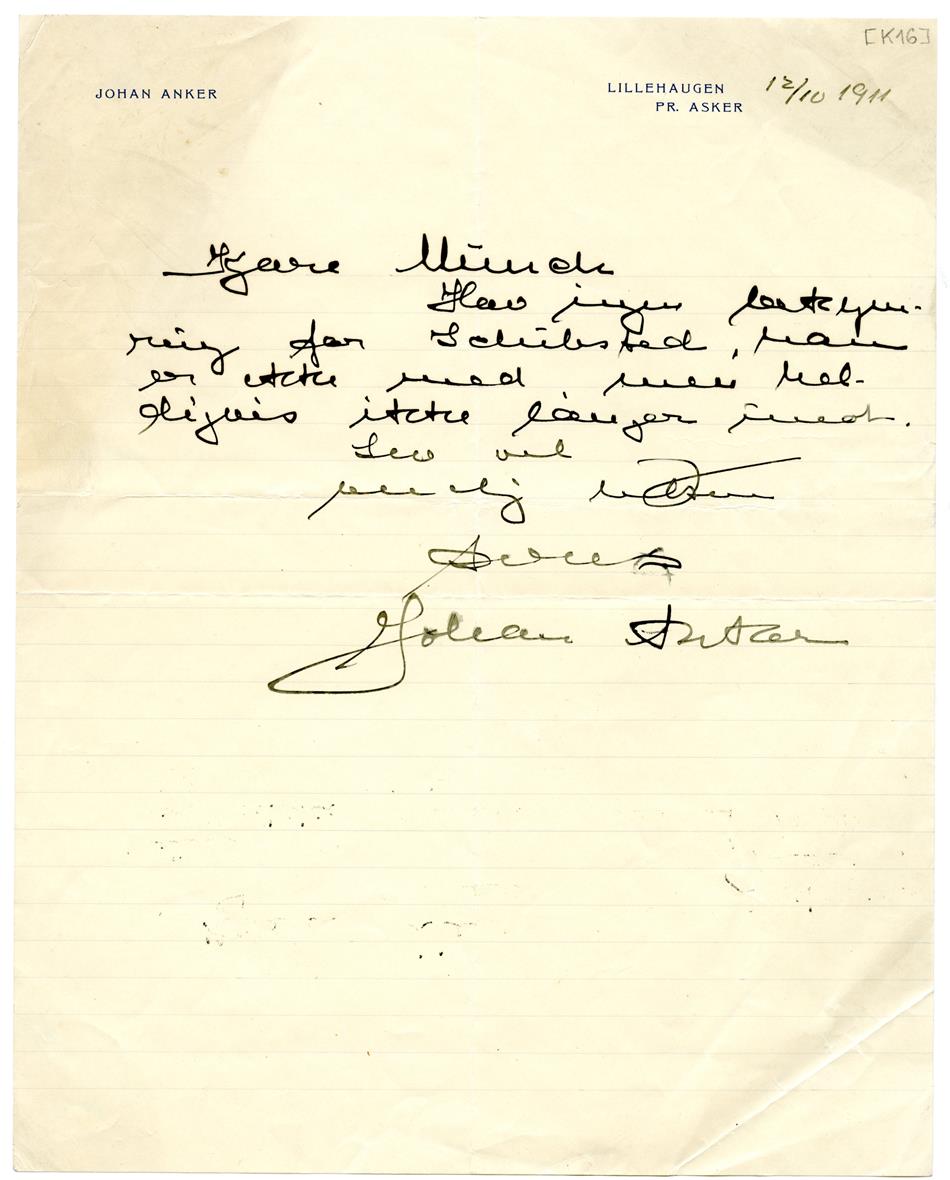 [K16]
JOHAN ANKER
LILLEHAUGEN
PR. ASKER
12/10 1911
Kjære Munch
Hav ingen bekym-
ring for Schibsted, han
er ikke med, men hel-
digvis ikke længer imot.
Lev vel
venlig hilsen
Deres
Johan Anker